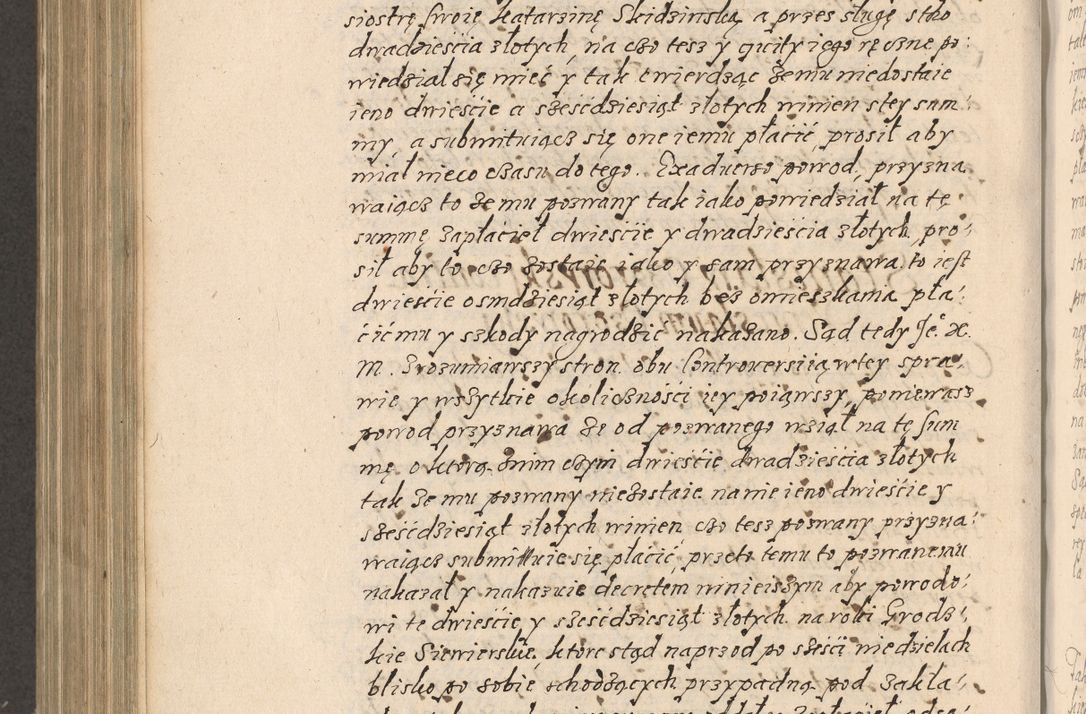 siostrę swoię Katarzinę Skidzinską, a przes sługę stho
dwadzieścia złotych, na czo tesz y qicity iego ręczne po:
wiedział się mieć y tak twierdząc że mu niedostaie
ieno dwieście a sześćdziesiąt złotych winien stey sum:
my, a submituiącz się one iemu płacić, prosił aby
miał nieco czasu do tego. Exaduerso powod, przyzna
waiącz to że mu pozwany tak iako powiedział na tę
summę zapłacieł dwieście y dwadzieścia złotych, pro:
sił aby to, czo zostaie iako y sam przyznawa to iest
dwieście osmdziesiąt złotych bez omieszkania pła:
ćić mu y szkody nagrodzić nakazano. Sąd tedy Je° X.
M. Zrozumiawszy stron obu Controuersiią wtey spra:
wie y wszytkie okoliczności iey poiąwszy, poniewasz
powod przyznawa że od pozwanego wziął na tę sum
mę o którą z nim czyni dwieście dwadzieścia złotych
tak że mu pozwany niezostaie na nie ieno dwieście y
sześćdziesiąt złotych winien czo tesz pozwany przyzna:
waiącz submittuie się płacić, przeto temu to pozwanemu
nakazał y nakazuie decretem ninieiszym aby powodo:
wi te dwieście y sześćdziesiąt złotych na roki Grodz:
kie Siewierskie, które stąd naprzod po sześci niedzielach
blisko po sobie schodzących przypadną pod zakła: